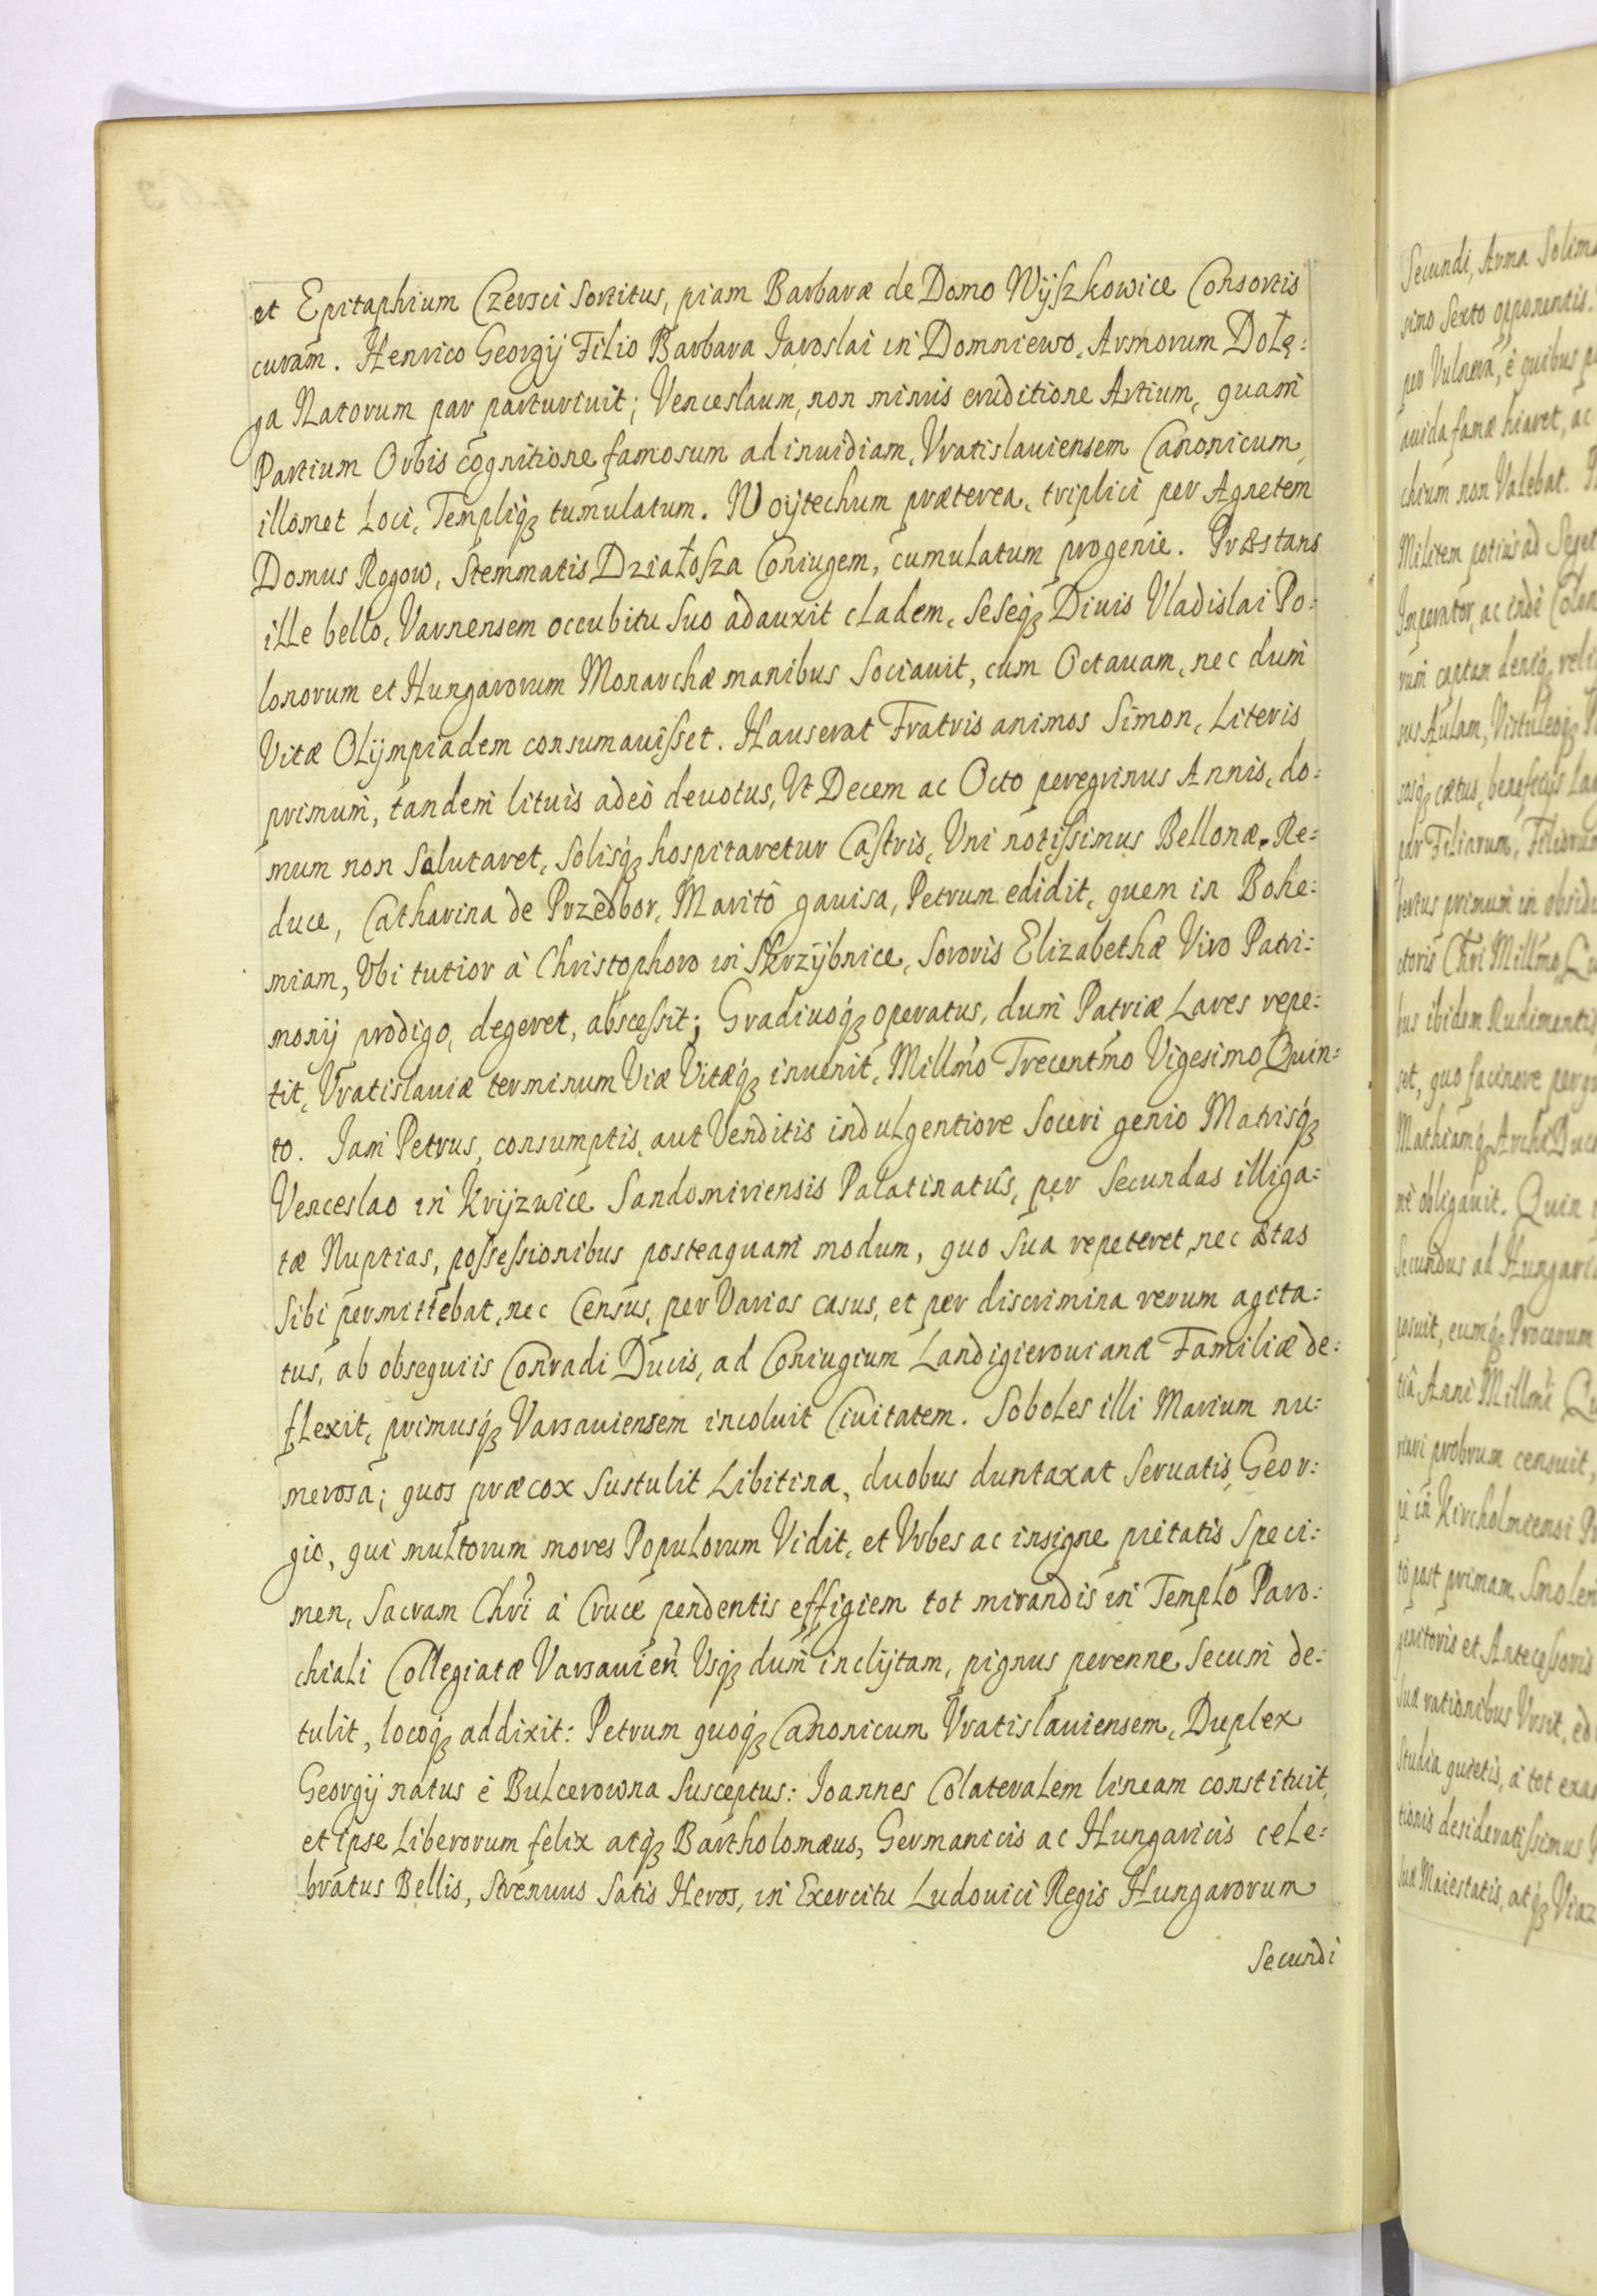 et Epitaphium Czersci sortitus, piam Barbaræ de Domo Wÿszkowice Consortis
curam. Henrico Georgij Filio Barbara Jaroslai in Domniewo, Armorum Dołę:
ga Natorum par parturiuit; Venceslaum, non minus eruditione Artium, quam
Partium Orbis cognitione famosum ad inuidiam, Vratislauiensem Canonicum,
illomet Loci, Templiqꝫ tumulatum. Woÿtechum præterea, triplici per Agnetem
Domus Rogow, Stemmatis Działosza Coniugem, cumulatum progenie. Præstans
ille bello, Varnensem occubitu suo adauxit cladem, seseqꝫ Diuis Vladislai Po:
lonorum et Hungarorum Monarchæ manibus sociauit, cum Octauam, nec dum
Vitæ Olÿmpiadem consumauisset. Hauserat Fratris animos Simon, Literis
primum, tandem lituis adeò deuotus, Vt Decem ac Octo peregrinus Annis, do:
mum non salutaret, solisqꝫ hospitaretur Castris, Vni notissimus Bellonæ. Re:
duce, Catharina de Przedbor, Maritô gauisa, Petrum edidit, quem in Bohe:
miam, Vbi tutior à Christophoro in Skrzÿbnice, Sororis Elizabethæ Viro Patri:
monij prodigo, degeret, abscessit; Gradiuoqꝫ operatus, dum Patriæ Lares repe:
tit, Vratislauiæ terminum Viæ Vitæqꝫ inuenit, Millmo Trecentmo Vigesimo Quin:
to. Jam Petrus, consumptis, aut Venditis indulgentiore Soceri genio Matrisqꝫ
Venceslao in Krÿzwice Sandomiriensis Palatinatûs, per Secundas illiga:
tæ Nuptias, possessionibus posteaquam modum, quo sua repeteret, nec ætas
sibi permittebat, nec Census, per Varios casus, et per discrimina rerum agita:
tus, ab obsequiis Conradi Ducis, ad Coniugium Landigierouianæ Familiæ de:
flexit, primusqꝫ Varsauiensem incoluit Ciuitatem. Soboles illi Marium nu:
merosa; quos præcox sustulit Libitina, duobus duntaxat seruatis, Geor:
gio, qui multorum mores Populorum Vidit, et Vrbes ac insigne pietatis speci:
men, Sacram Chri à Cruce pendentis effigiem tot mirandis in Templo Paro:
chiali Collegiatæ Varsauien Vsqꝫ dum inclÿtam, pignus perenne secum de:
tulit, locoqꝫ addixit: Petrum quoqꝫ Canonicum Vratislauiensem, Duplex
Georgij natus è Bulcerowna susceptus: Joannes Colateralem lineam constituit,
et ipse Liberorum felix atqꝫ Bartholomæus, Germanicis ac Hungaricis cele:
bratus Bellis, Strenuus satis Heros, in Exercitu Ludouici Regis Hungarorum
Secundi
Secundi, Arma
simo Sexto opponentis.
per Vulnera, è quibus
auida famæ hiaret, ac
chium non Valebat.
Militem potius ad
Imperator, ac inde
sus Aulam,
par Filiarum,
bertus primum in
bus ibidem Rudimentis
set, quo facinore
ne obligauit. Quin
Secundus ad
posuit, eumqꝫ Procerum
tiâ Anni Millmi
riari probrum censuit,
in Kircholmiensi
to post primam
genitoris et Antecessoris
suæ rationibus Vrsit,
Studia quietis, à tot
tionis desideratissimus
suæ Maiestatis, atqꝫ